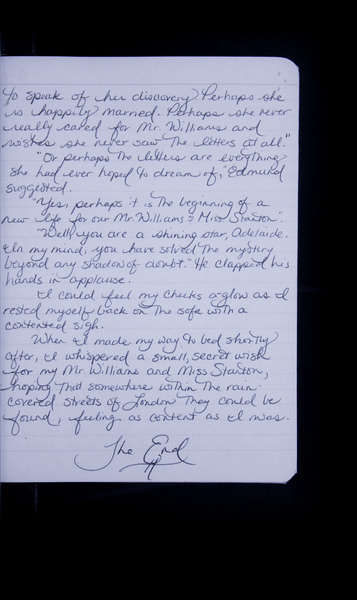 to speak of her discovery. Perhaps she
is happily married. Perhaps she never
really cared for Mr. Williams and
wishes she never saw the letters at all."
"Or perhaps the letters are everything
she had ever hoped to dream of," Edmund
suggested.
"Yes, perhaps it is the beginning of a
new life for our Mr. Williams & Miss Staxton".
"Well, you are a shining star, Adelaide.
In my mind, you have solved the mystery
beyond any shadow of doubt." He clapped his
hands in applause.
I could feel my cheeks aglow as I
rested myself back on the sofa with a
contented sigh.
When I made my way to bed shortly
after, I whispered a small, secret wish
for my Mr. Williams and Miss Staxton,
hoping that somewhere within the rain-
covered streets of London they could be
found, feeling as content as I was.
The End